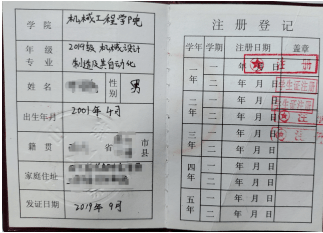 学院 机械工程学院
年级 2019级 机械设计
专业 制造及其自动化
姓名 性别 男
出生年月 2001年4月
籍贯 省 市县
家庭住址
发证日期 2019年9月
注册登记
学年 学期 注册日期 盖章
一年 一 年 月 日 注册
二 年 月 日
二年 一 年 月 日
二 年 月 日
三年 一 年 月 日
二 年 月 日
四年 一 年 月 日
二 年 月 日
五年 一 年 月 日
二 年 月 日